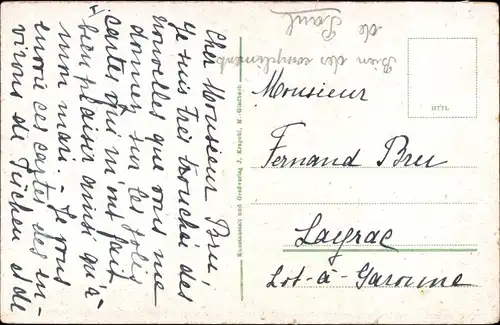 I
Cher Monsieur Bru,
Je suis très touchée des
nouvelles que vous me
donnez sur les jolies
cartes qui m'ont fait
bien plaisir ainsi qu'à
mon mari. - Je vous
envoie ces cartes des en-
virons de et de
Bien des compliments
de Paul
Kunstanstalt und Großverlag J. Krapohl, M.-Gladbach
Monsieur
Fernand Bru
Layrac
Lot-à-Garonne